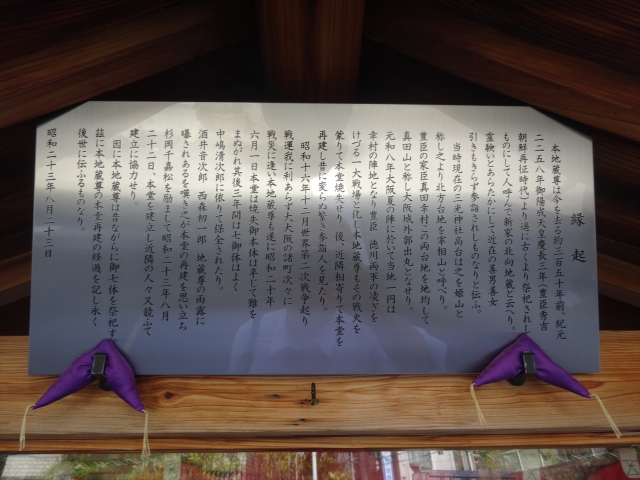 縁起
本地蔵尊は今をさる約三百五十年前、紀元
二二五八年御陽成天皇慶長三年(豊臣秀吉
朝鮮再征時代)より遥に古くより祭祀されし
ものにして人呼んで新家の北向地蔵と云へり。
霊験いとあらたかにして近在の善男善女
引きもきらず参詣されしものなりと伝ふ。
当時現在の三光神社高台は之を姫山と
称し之より北方台地を宰相山と呼べり。
豊臣の家臣真田幸村この両台地を地均して
真田山と称し大阪城外郭出丸となせり。
元和八年大阪夏の陣に於いて当地一円は
幸村の陣地となり豊臣 徳川両軍の凌ぎを
けづる一大戦場と化し本地蔵尊もその戦火を
蒙りて本堂焼失せり 後、近隣相寄りて本堂を
再建し昔に変らぬ繁き参詣人を見たり。
昭和十六年十二月世界第二次戦争起り
戦運我に利あらず大大阪の諸町次々に
戦災に逢い本地蔵尊も遂に昭和二十年
六月一日本堂は焼失御本体は辛じて難を
まぬがれ其後三年間は御本体はよく
中嶋清次郎に依りて保全されたり。
酒井音次郎 西森初一郎 地蔵尊の雨露に
曝されあるを嘆き之が本堂の再建を思い立ち
杉岡千嘉松を励まして昭和二十三年八月
二十二日、本堂を建立し近隣の人々又競ふて
建立に協力せり。
因に本地蔵尊は昔ながらに御七体を祭祀す
茲に本地蔵尊の本堂再建の経過を記し永く
後世に伝ふるものなり。
昭和二十三年八月二十三日